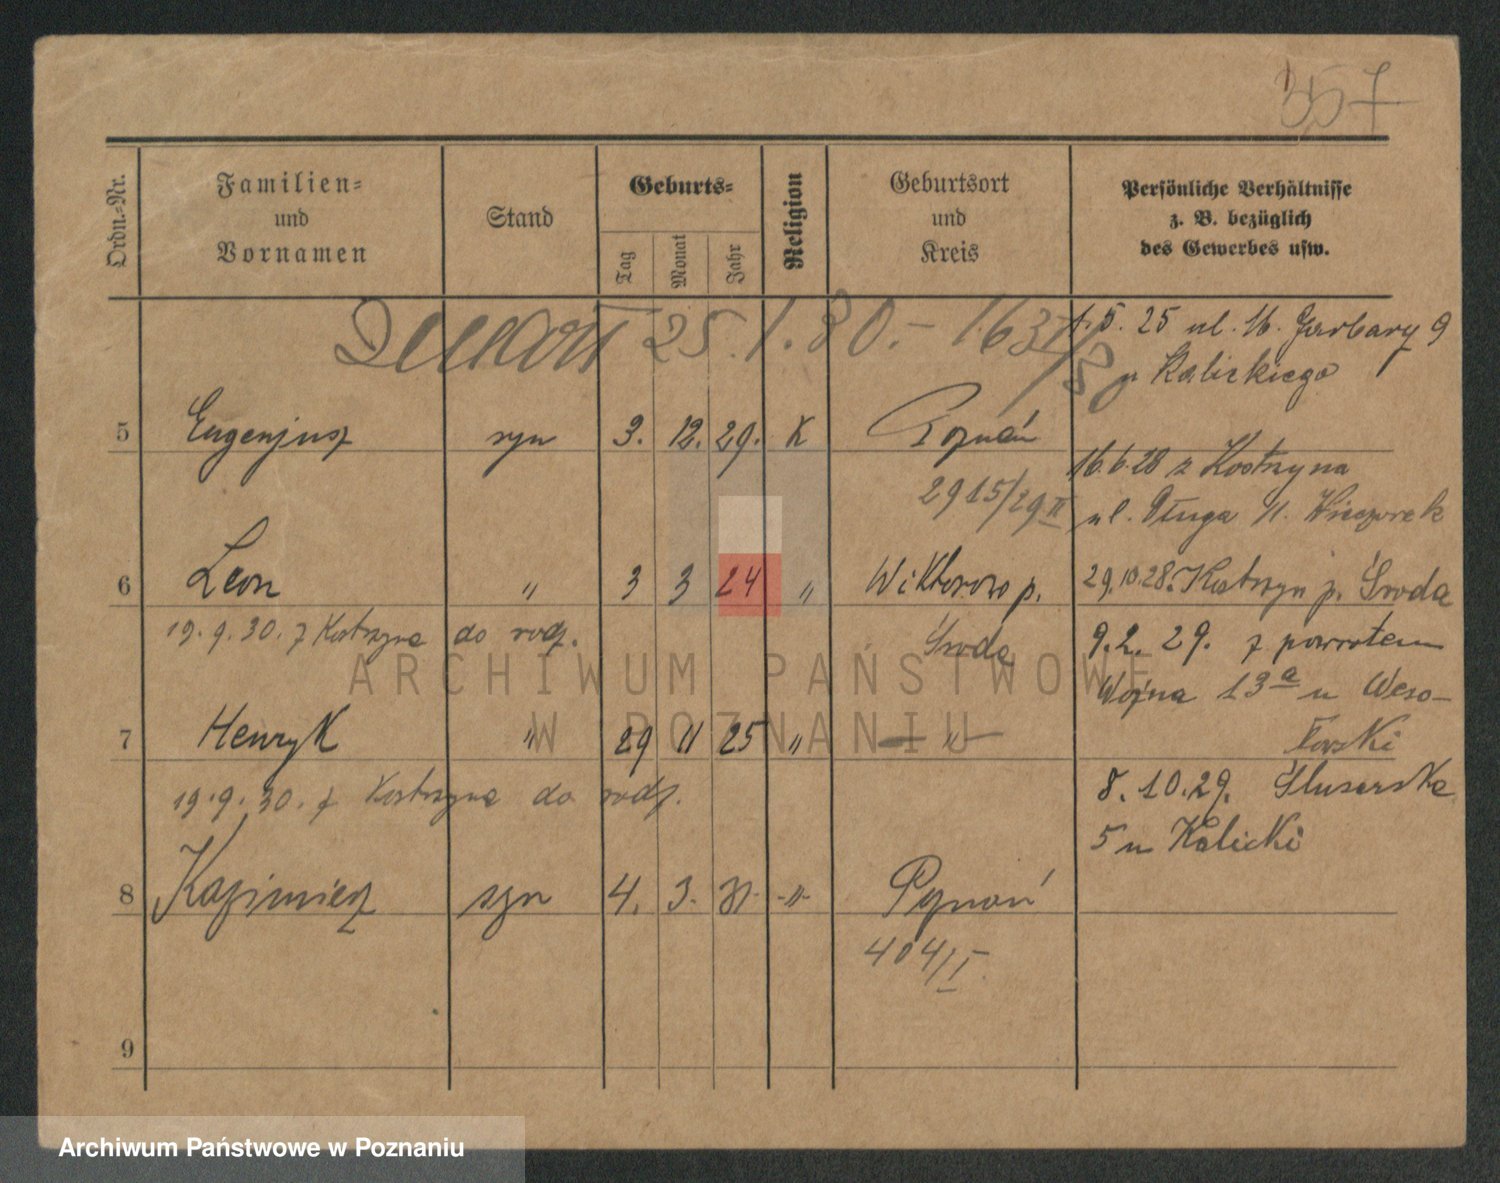 357
Ordn.-Nr.
Familien-
und
Vornamen
Stand
Geburts-
Tag
Monat
Jahr
Religion
Geburtsort
und
Kreis
Persönliche Verhältnisse
z. B. bezüglich
des Gewerbes usw.
25.1.30.- 1637/30
5. 25 ul. W. Garbary 9
u Kalickiego
5 Eugenjusz syn 3. 12. 29. K Poznań
2915/29 II
16.6.28 z Kostrzyna
ul. Długa 11. Wieczorek
6 Leon " 3 3 24 " Wiktorowo p.
Środa
29.10.28. Kostrzyn p. Środa
19.9.30. z Kostrzyna do rodz.
9.2.29. z powrotem
Wojna 13a u Weso-
łowski
7 Henryk " 29 11 25 " — " —
19.9.30. z Kostrzyna do rodz.
8.10.29. Ślusarska
5 u Kalicki
8 Kazimierz syn 4. 3. 31. -"- Poznań
404/I.
9
ARCHIWUM PAŃSTWOWE
W POZNANIU
Archiwum Państwowe w Poznaniu